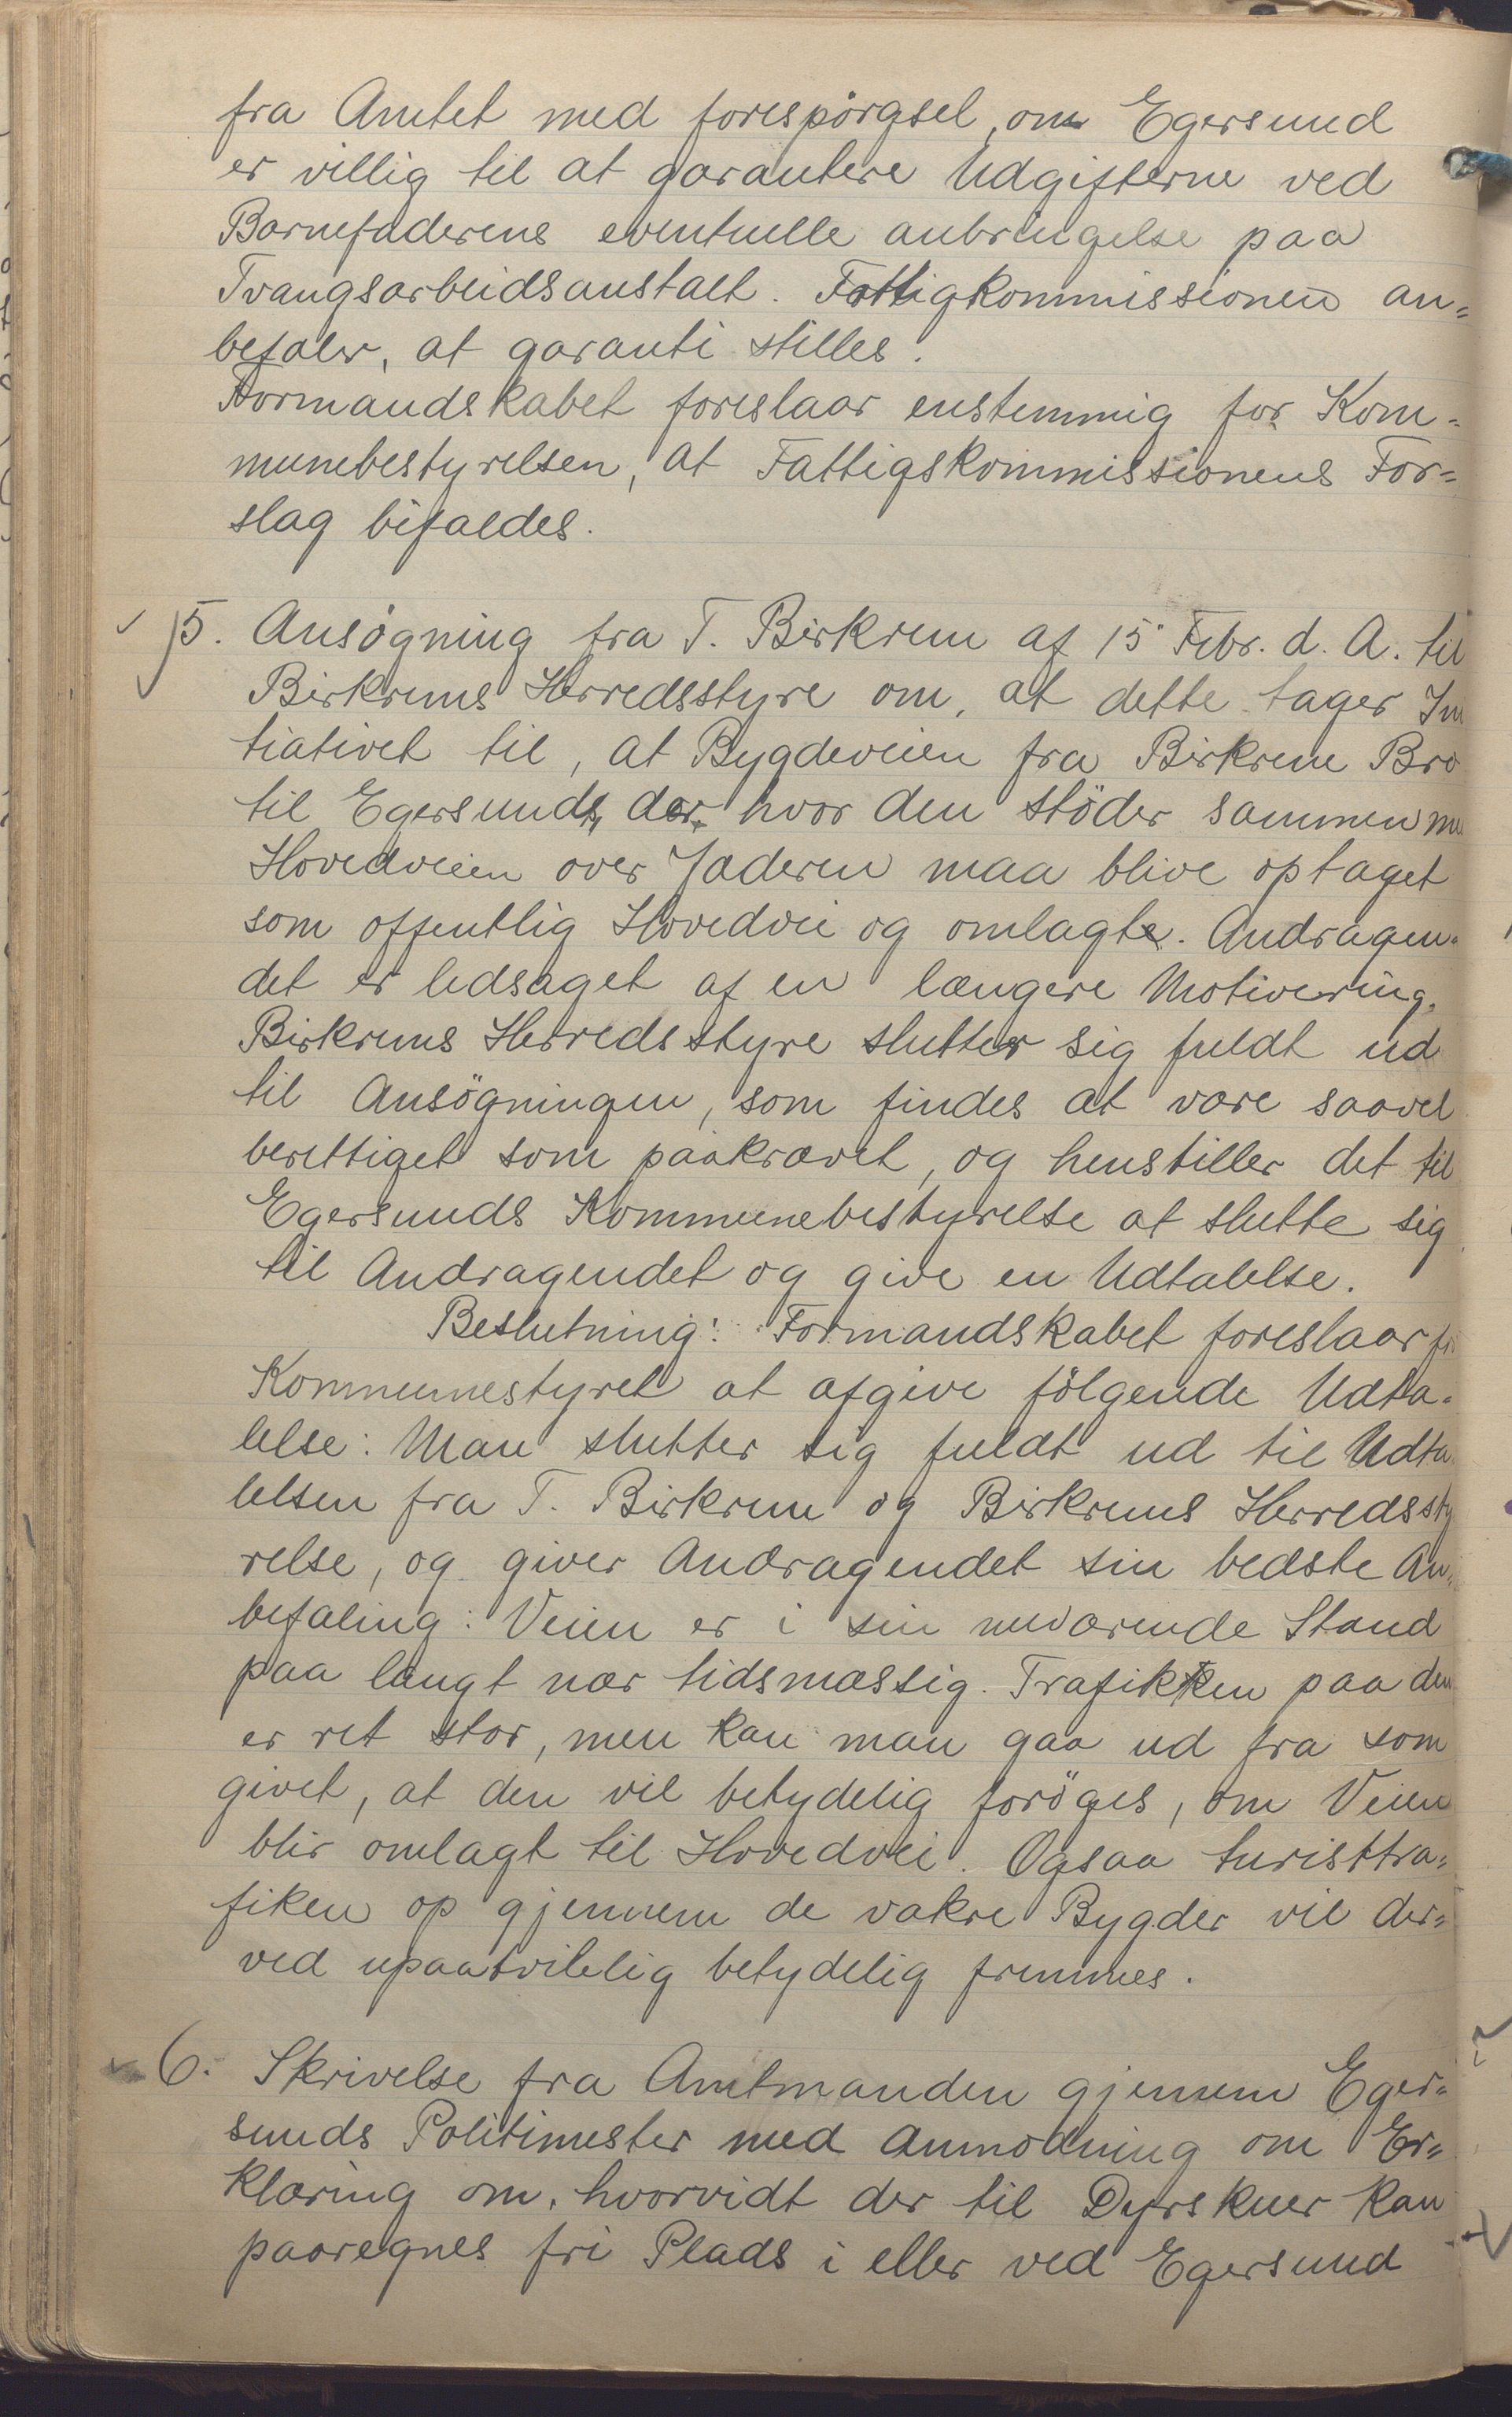 fra Amtet med forespörgsel, om Egersund
er villig til at garantere Udgifterne ved
Barnefaderens eventuelle anbringelse paa
Tvangsarbeidsanstalt. Fattigkommissionen an=
befaler, at garanti stilles.
Formandskabet foreslaar enstemmig for Kom=
munebestyrelsen, at Fattigskommissionens For=
slag bifaldes.
5. Ansögning fra T. Birkrem af 15 Febr. d. A. til
Birkrems Herredsstyre om, at dette tager Ini
tiativet til, at Bygdeveien fra Birkrem Bro
til Egersund, der, hvor den stöder sammen me
Hovedveien over Jæderen maa blive optaget
som offentlig Hovedvei og omlagt. Andragen=
det er ledsaget af en længere Motivering.
Birkrems Herredsstyre slutter sig fuldt ud
til Ansögningen, som findes at være saavel
berettiget som paakrævet, og henstiller det til
Egersunds Kommunebestyrelse at slutte sig
til Andragendet og give en Udtalelse.
Beslutning: Formandskabet foreslaar for
Kommunestyret at afgive fölgende Udta=
lelse: Man slutter sig fuldt ud til Udta
lelsen fra T. Birkrem og Birkrems Herredssty
relse, og giver Andragendet sin bedste An=
befaling: Veien er i sin nuværende Stand
paa langt nær tidsmæssig. Trafikken paa den
er ret stor, men kan man gaa ud fra som
givet, at den vil betydelig foröges, om Veien
blir omlagt til Hovedvei. Ogsaa turisttra=
fiken op gjennem de vakre Bygder vil der=
ved upaatvilelig betydelig fremmes.
6. Skrivelse fra Amtmanden gjennem Eger=
sunds Politimester med Anmodning om Er=
klæring om, hvorvidt der til Dyrskuer kan
paaregnes fri Plads i eller ved Egersund